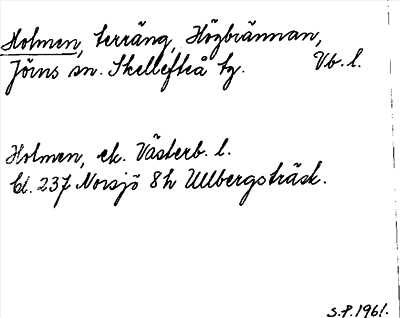 Holmen, terräng, Högbrännan,
Jörns sn. Skellefteå tg. Vb. l.
Holmen, ek. Västerb. l.
bl. 237 Norsjö 8h Ullbergsträsk.
S.P. 1961.